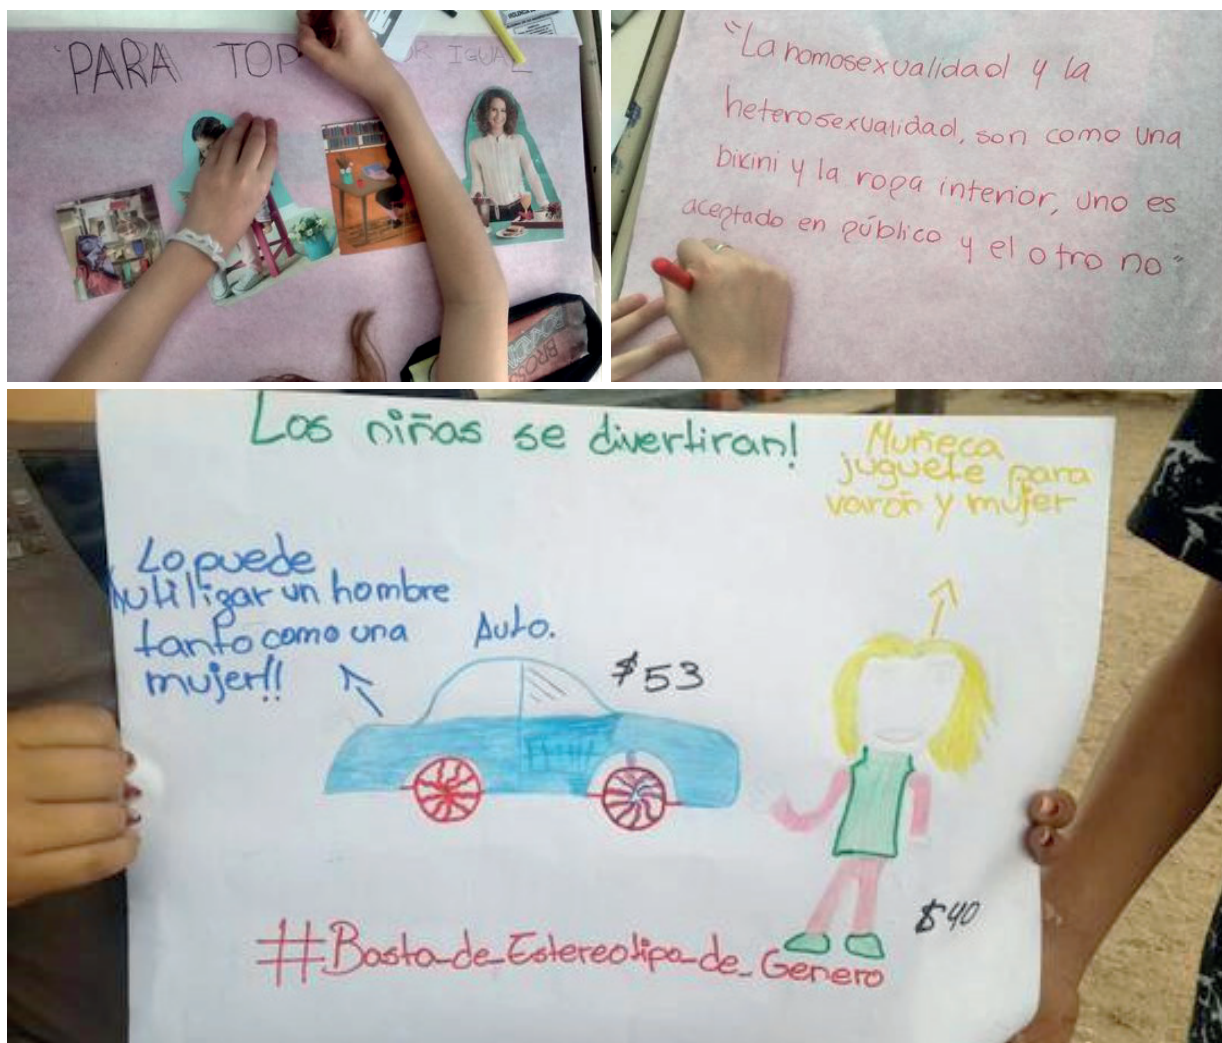 "PARA TOD OR IGUAL
"La homosexualidad y la
heterosexualidad, son como una
bikini y la ropa interior, uno es
aceptado en público y el otro no"
Los niñas se divertiran!
Muñeca
juguete para
varón y mujer
Lo puede
utiligar un hombre
tanto como una
mujer!!
Auto.
$53
$40
#Basta_de_Estereotipo_de_Genero